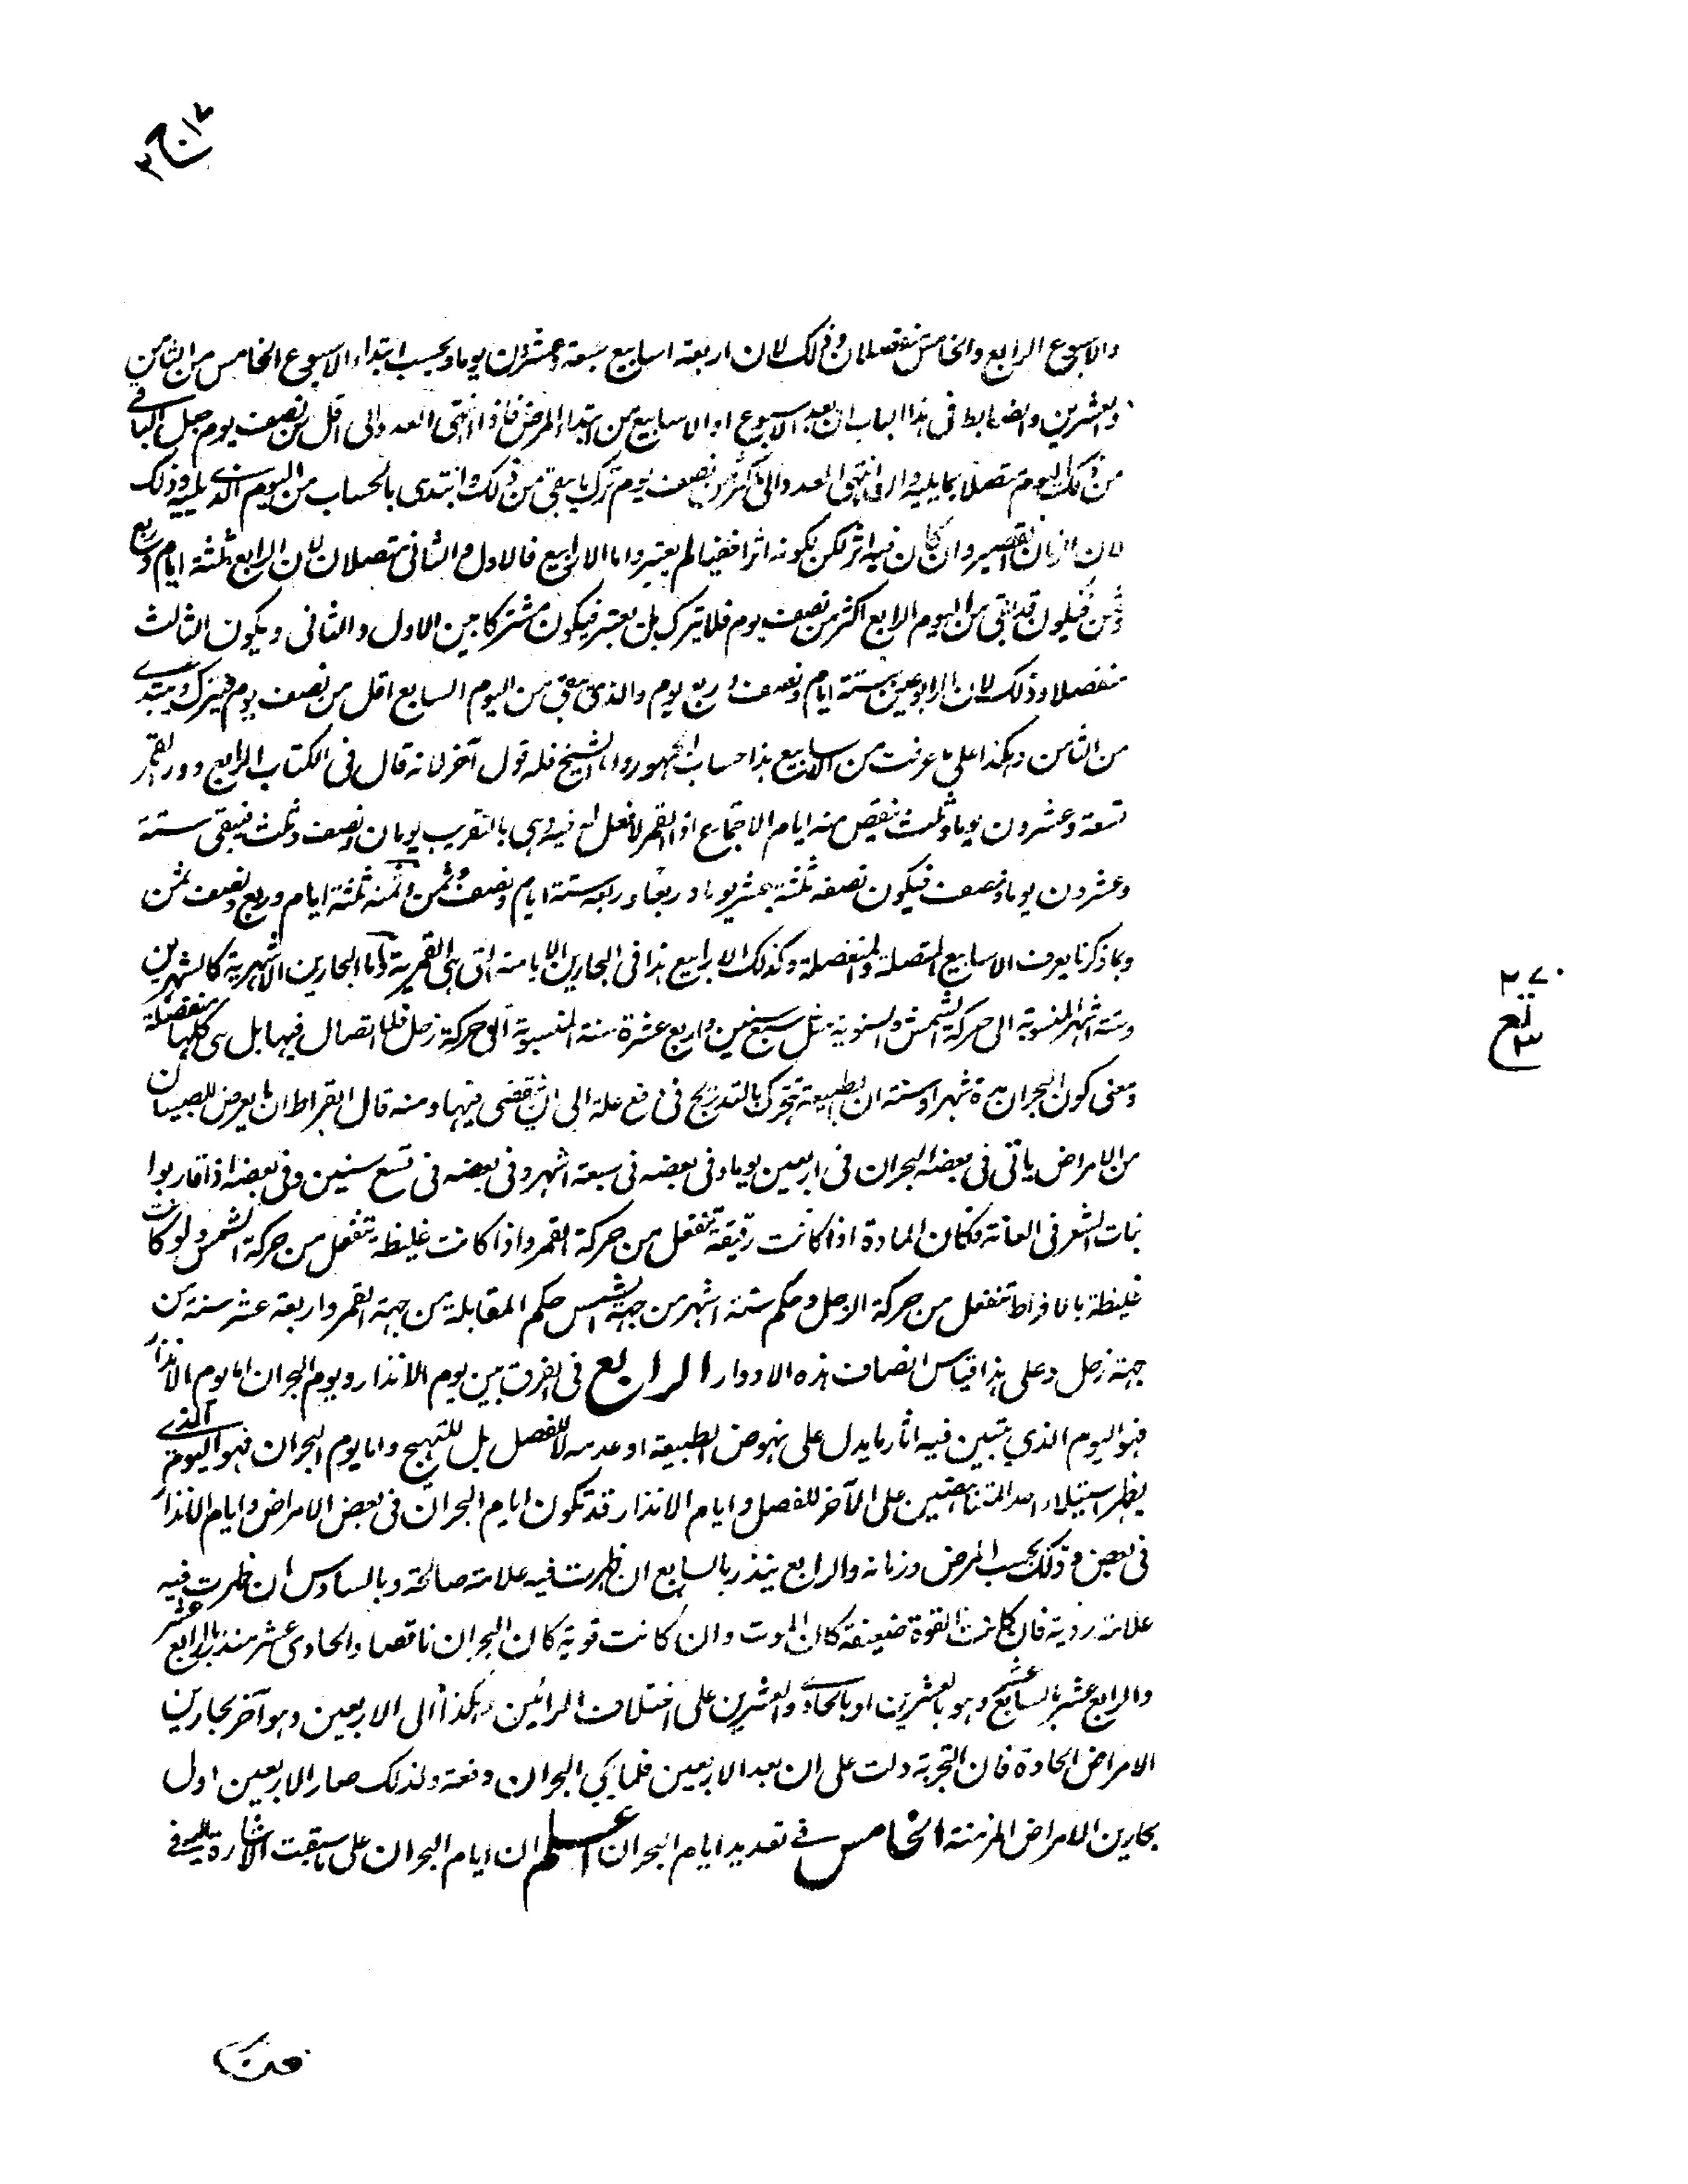 والاسبوع الرابع والخامس منفصلان وذلك لان اربعة اسابيع سبعة وعشرون يوما ويحسب ابتداء الاسبوع الخامس من الثامن
والعشرين والضابط فى هذا الباب ان يعد الاسبوع او الاسابيع من ابتداء المرض فاذا انتهى العدد الى اقل من نصف يوم جعل الباقي
من ذلك اليوم متصلا بما يليه وان انتهى العدد الى اكثر من نصف يوم ترك ما بقى من ذلك وابتدى بالحساب من اليوم الذي يليه وذلك
لان الزمان القصير وان كان فيه اثر لكن لكونه اثرا خفيا لم يعتبر واما الارابيع فالاول والثانى متصلان لان الرابع ثلثة ايام وربع
وثمن فيكون قد بقى من اليوم الرابع اكثر من نصف يوم فلا يترك بل يعتبر فيكون مشتركا بين الاول والثانى ويكون الثالث
منفصلا وذلك لان الرابوعين ستة ايام ونصف وربع يوم والذى بقى من اليوم السابع اقل من نصف يوم فيترك ويبتدى
من الثامن وهكذا على ما عرفت من الاسابيع هذا حساب الجمهور واما الشيخ فله قول آخر لانه قال فى الكتاب الرابع دور القمر
تسعة وعشرون يوما وثلث ينقص منه ايام الاجتماع اذ القمر لا فعل له فيه وهى بالتقريب يومان ونصف وثلث فيبقى ستة
وعشرون يوما ونصف فيكون نصفه ثلثة عشر يوما وربعا وربعه ستة ايام ونصف وثمن وثمنه ثلثة ايام وربع ونصف ثمن
وبما ذكرنا يعرف الاسابيع المتصلة والمنفصلة وكذلك الارابيع هذا فى البحارين الايامية التى هى القمرية واما البحارين الاشهرية كالشهرين
وستة اشهر المنسوبة الى حركة الشمس والسنوية مثل سبع سنين واربع عشرة سنة المنسوبة الى حركة زحل فلا اتصال فيها بل هى كلها منفصلة
ومعنى كون البحران مدة شهر او سنة ان الطبيعة تتحرك بالتدريج فى دفع علة الى ان تنقضى فيها ومنه قال ابقراط ان ما يعرض للصبيان
من الامراض ياتى فى بعضه البحران فى اربعين يوما وفى بعضه فى سبعة اشهر وفى بعضه فى تسع سنين وفى بعضه اذا قاربوا
نبات الشعر فى العانة فكان المادة اذا كانت رقيقة تنفعل من حركة القمر واذا كانت غليظة تنفعل من حركة الشمس ولو كانت
غليظة بالافراط تنفعل من حركة الزحل وحكم ستة اشهر من جهة الشمس حكم المقابلة من جهة القمر واربعة عشر سنة من
جهة زحل وعلى هذا قياس انصاف هذه الادوار الرابع فى الفرق بين يوم الانذار ويوم البحران اما يوم الانذار
فهو اليوم الذي يتبين فيه اثار ما يدل على نهوض الطبيعة او عدمه لا للفصل بل للتهيج واما يوم البحران فهو اليوم الذي
يظهر استيلاء احد المتناهضين على الآخر للفصل وايام الانذار قد تكون ايام البحران فى بعض الامراض وايام الانذار
فى بعض وذلك بحسب المرض وزمانه والرابع ينذر بالسابع ان ظهرت فيه علامة صالحة وبالسادس ان ظهرت فيه
علامة ردية فان كانت القوة ضعيفة كان الموت وان كانت قوية كان البحران ناقصا والحادى عشر منذر بالرابع عشر
والرابع عشر بالسابع عشر وهو بالعشرين او بالحادي والعشرين على اختلاف الرائين وهكذا الى الاربعين وهو آخر بحارين
الامراض الحادة فان التجربة دلت على ان بعد الاربعين قلما يجى البحران دفعة ولذلك صار الاربعين اول
بحارين الامراض المزمنة الخامس فى تعديد ايام البحران اعلم ان ايام البحران على ما سبقت الاشارة اليه فى
٢٧٠